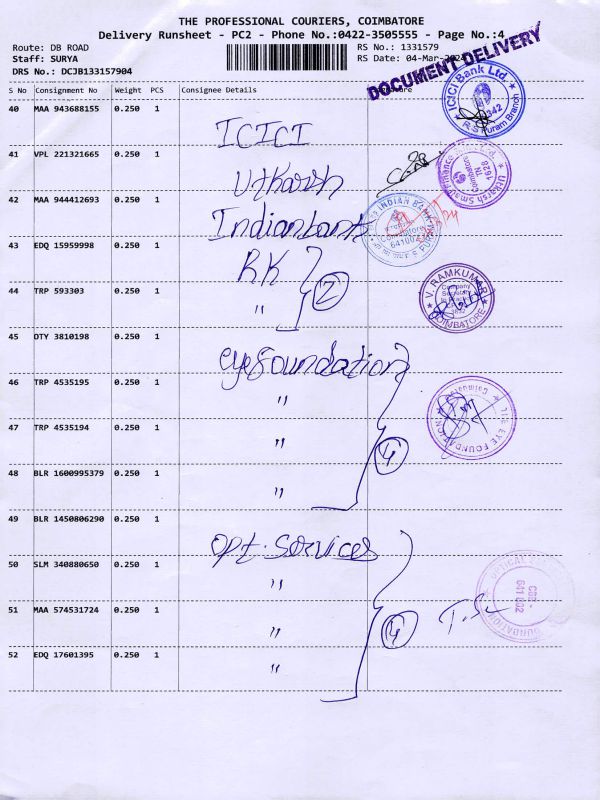 THE PROFESSIONAL COURIERS, COIMBATORE
Delivery Runsheet - PC2 - Phone No.:0422-3505555 - Page No.:4
Route: DB ROAD
RS No.: 1331579
Staff: SURYA
RS Date: 04-Mar-2024
DRS No.: DCJB133157904
DOCUMENT DELIVERY
S No Consignment No Weight PCS Consignee Details
40 MAA 943688155 0.250 1
ICICI
ICICI Bank Ltd. R.S Puram Branch
41 VPL 221321665 0.250 1
Utkarsh
Utkarsh Small Finance Coimbatore TN 1628
42 MAA 944412693 0.250 1
Indianbank
INDIAN BANK Coimbatore 641002 R S PURAM
43 EDQ 15959998 0.250 1
RK
2
44 TRP 593303 0.250 1
"
V. RAMKUMAR Company Secretary COIMBATORE
45 OTY 3810198 0.250 1
eyefoundation
46 TRP 4535195 0.250 1
"
THE EYE FOUNDATION
47 TRP 4535194 0.250 1
"
4
48 BLR 1600995379 0.250 1
"
49 BLR 1450806290 0.250 1
opt. services
50 SLM 340880650 0.250 1
"
OPTICAL CBE- 641 002 FOUNDATION
51 MAA 574531724 0.250 1
"
4
52 EDQ 17601395 0.250 1
"